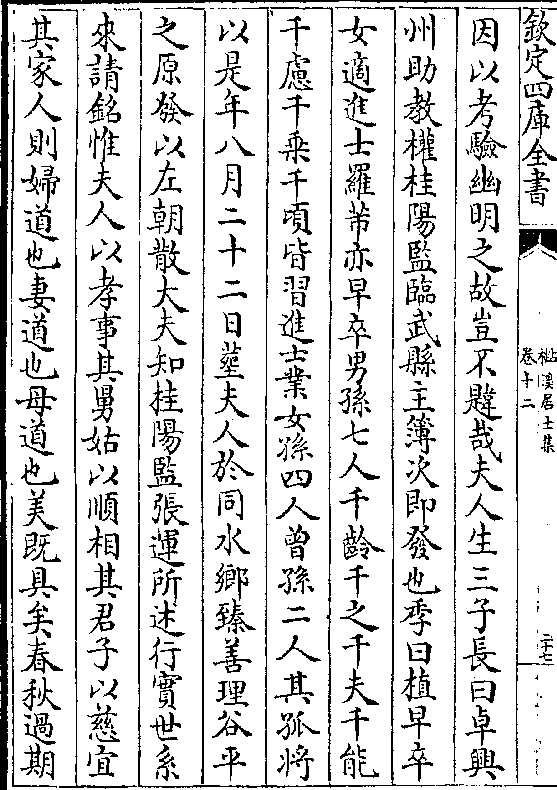 欽定四庫全書
因以考驗幽明之故豈不韙哉夫人生三子長曰卓興
州助教權桂陽監臨武縣主簿次即發也季曰植早卒
女適進士羅芾亦早卒男孫七人千齡千之千夫千能
千慮千乗千頃皆習進士業女孫四人曾孫二人其孤將
以是年八月二十二日塟夫人於同水鄉臻善理谷平
之原發以左朝散大夫知桂陽監張運所述行實世系
來請銘惟夫人以孝事其舅姑以順相其君子以慈宜
其家人則婦道也妻道也母道也美既具矣春秋過期
溪居士集
卷十二
二十七